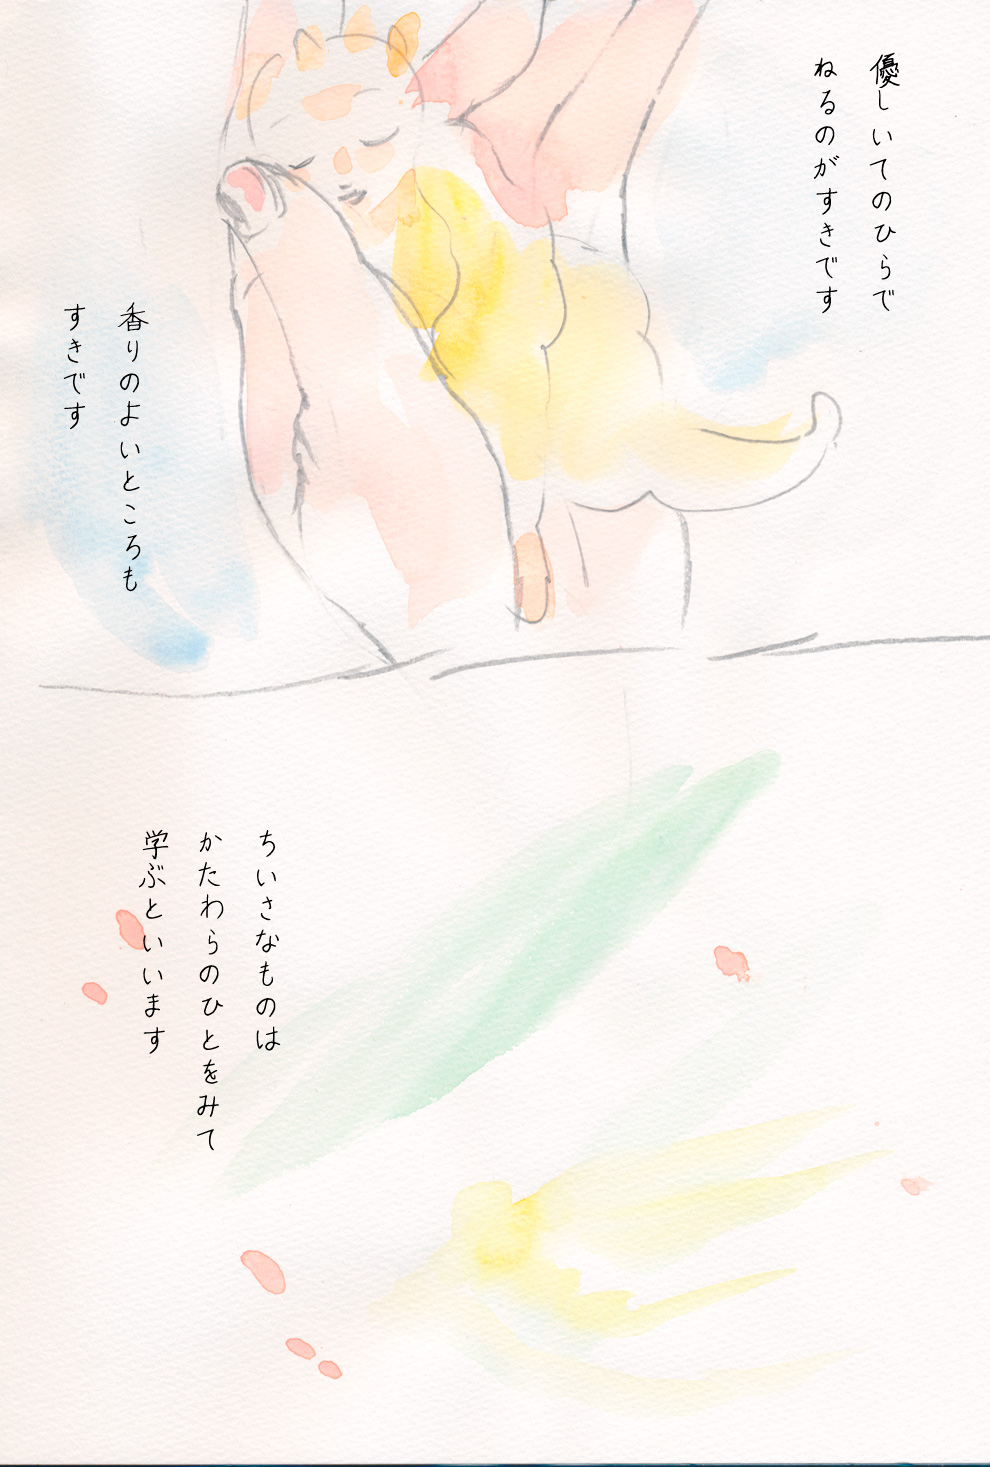 優しいてのひらで
ねるのがすきです
香りのよいところも
すきです
ちいさなものは
かたわらのひとをみて
学ぶといいます